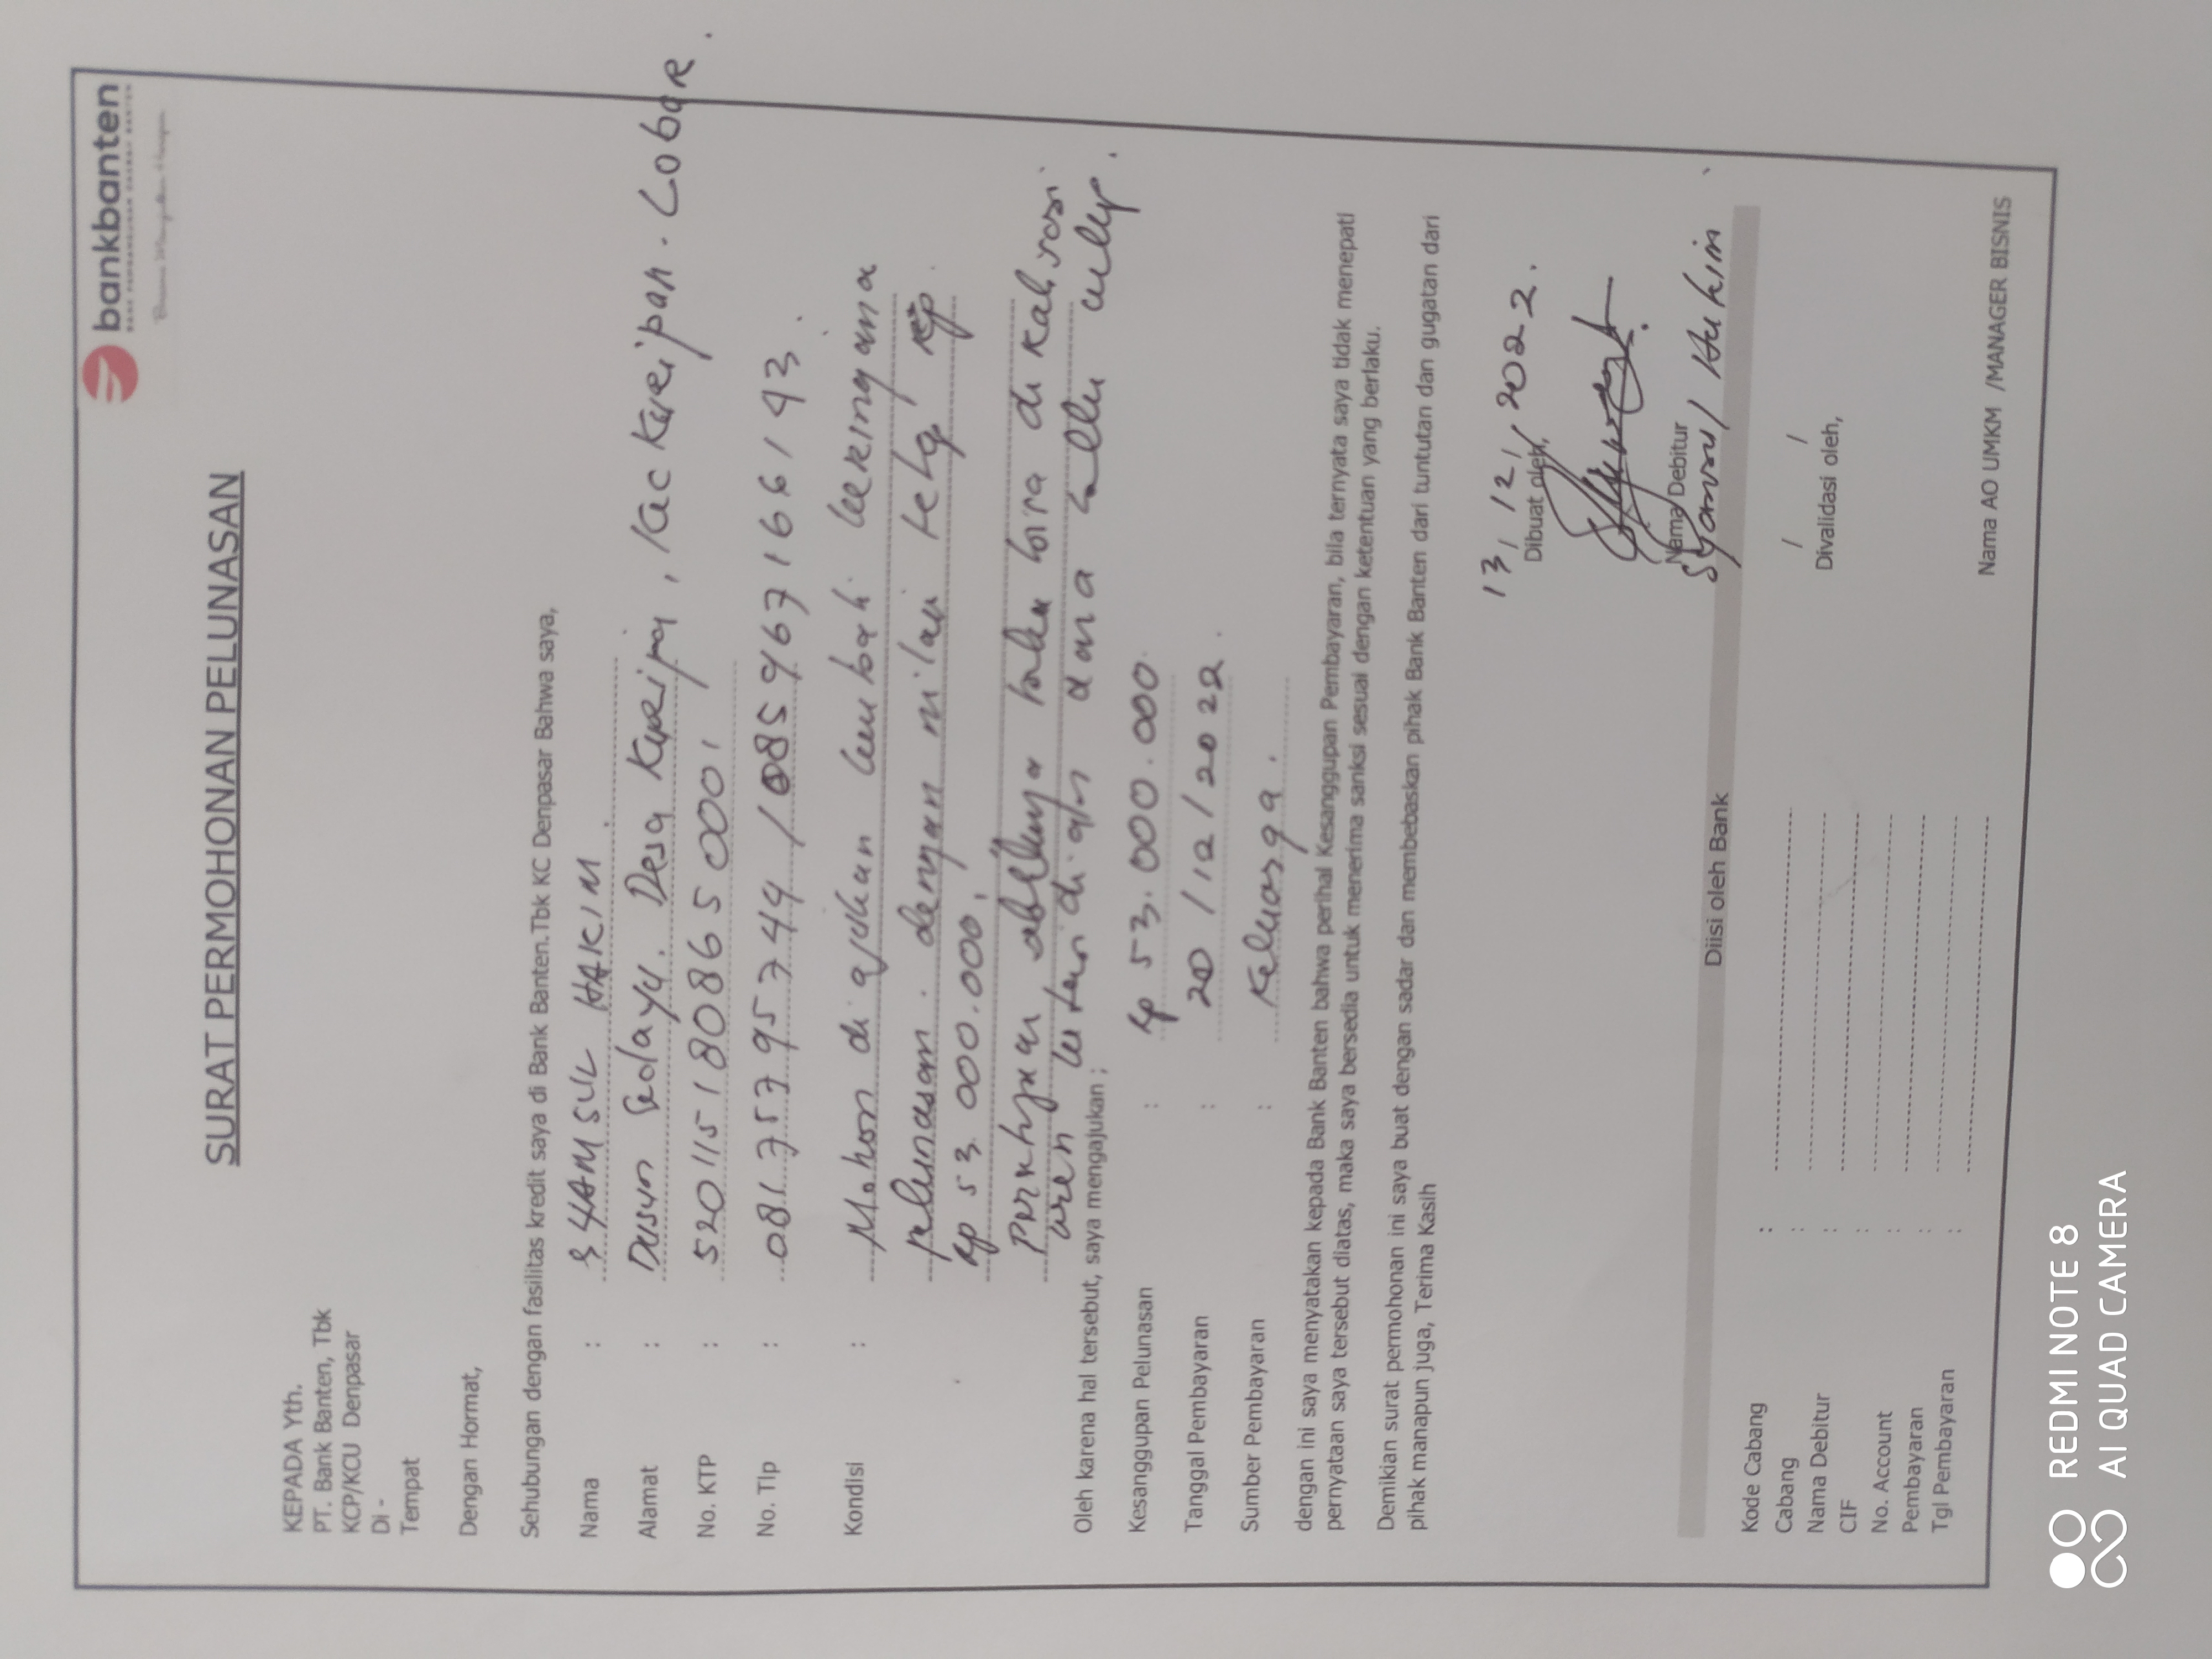 bankbanten
SURAT PERMOHONAN PELUNASAN
KEPADA Yth.
PT. Bank Banten, Tbk
KCP/KCU Denpasar
Di -
Tempat
Dengan Hormat,
Sehubungan dengan fasilitas kredit saya di Bank Banten.Tbk KC Denpasar Bahwa saya,
Nama : SYAMSUL HAKIM
Alamat : Dusun Sedayu, Desa Kuripan, Kec Kuripan. Lobar.
No. KTP : 5201151808650001
No. Tlp : 081757957 44 /
Kondisi : Mohon di ajukan
pelunasan. dengan nilai
Rp 53.000.000,
bisa di
dana
Oleh karena hal tersebut, saya mengajukan ;
Kesanggupan Pelunasan : Rp 53.000.000
Tanggal Pembayaran : 20/12/2022
Sumber Pembayaran : Keluarga.
dengan ini saya menyatakan kepada Bank Banten bahwa perihal Kesanggupan Pembayaran, bila ternyata saya tidak menepati
pernyataan saya tersebut diatas, maka saya bersedia untuk menerima sanksi sesuai dengan ketentuan yang berlaku.
Demikian surat permohonan ini saya buat dengan sadar dan membebaskan pihak Bank Banten dari tuntutan dan gugatan dari
pihak manapun juga, Terima Kasih
13/12/2022.
Dibuat oleh,
Nama Debitur
Syamsul Hakim
Diisi oleh Bank
Kode Cabang :
Cabang :
Nama Debitur :
CIF :
No. Account :
Pembayaran :
Tgl Pembayaran :
/ /
Divalidasi oleh,
Nama AO UMKM /MANAGER BISNIS
REDMI NOTE 8
AI QUAD CAMERA